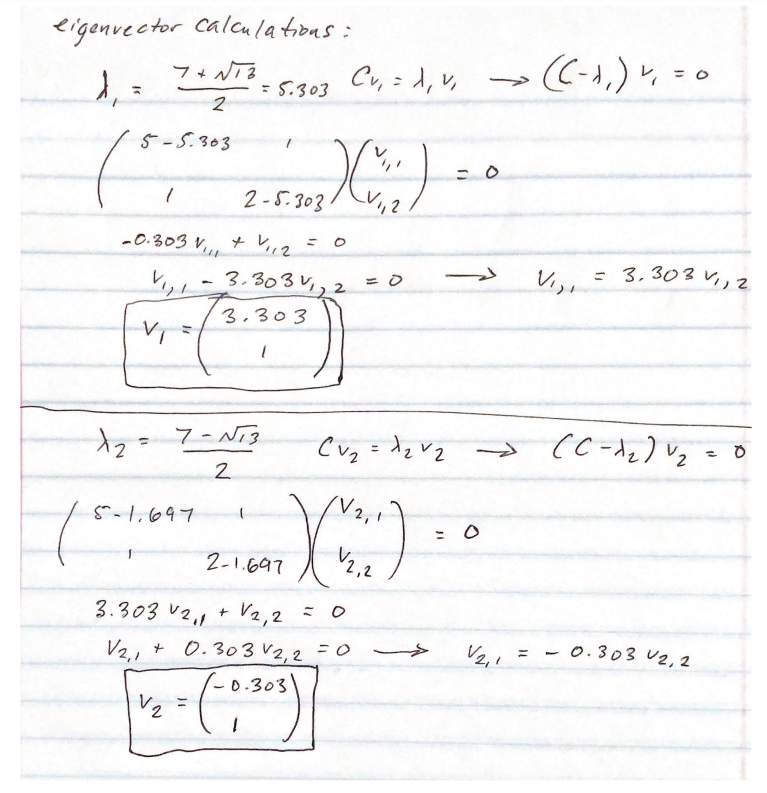 eigenvector calculations:
λ₁ = (7 + √13)/2 = 5.303 Cv₁ = λ₁ v₁ → (C-λ₁) v₁ = 0
( 5-5.303 1 ) ( v₁,₁ ) = 0
( 1 2-5.303 ) ( v₁,₂ )
-0.303 v₁,₁ + v₁,₂ = 0
v₁,₁ - 3.303 v₁,₂ = 0 → v₁,₁ = 3.303 v₁,₂
v₁ = ( 3.303
1 )
λ₂ = (7 - √13)/2 Cv₂ = λ₂ v₂ → (C-λ₂) v₂ = 0
( 5-1.697 1 ) ( v₂,₁ ) = 0
( 1 2-1.697 ) ( v₂,₂ )
3.303 v₂,₁ + v₂,₂ = 0
v₂,₁ + 0.303 v₂,₂ = 0 → v₂,₁ = - 0.303 v₂,₂
v₂ = ( -0.303
1 )